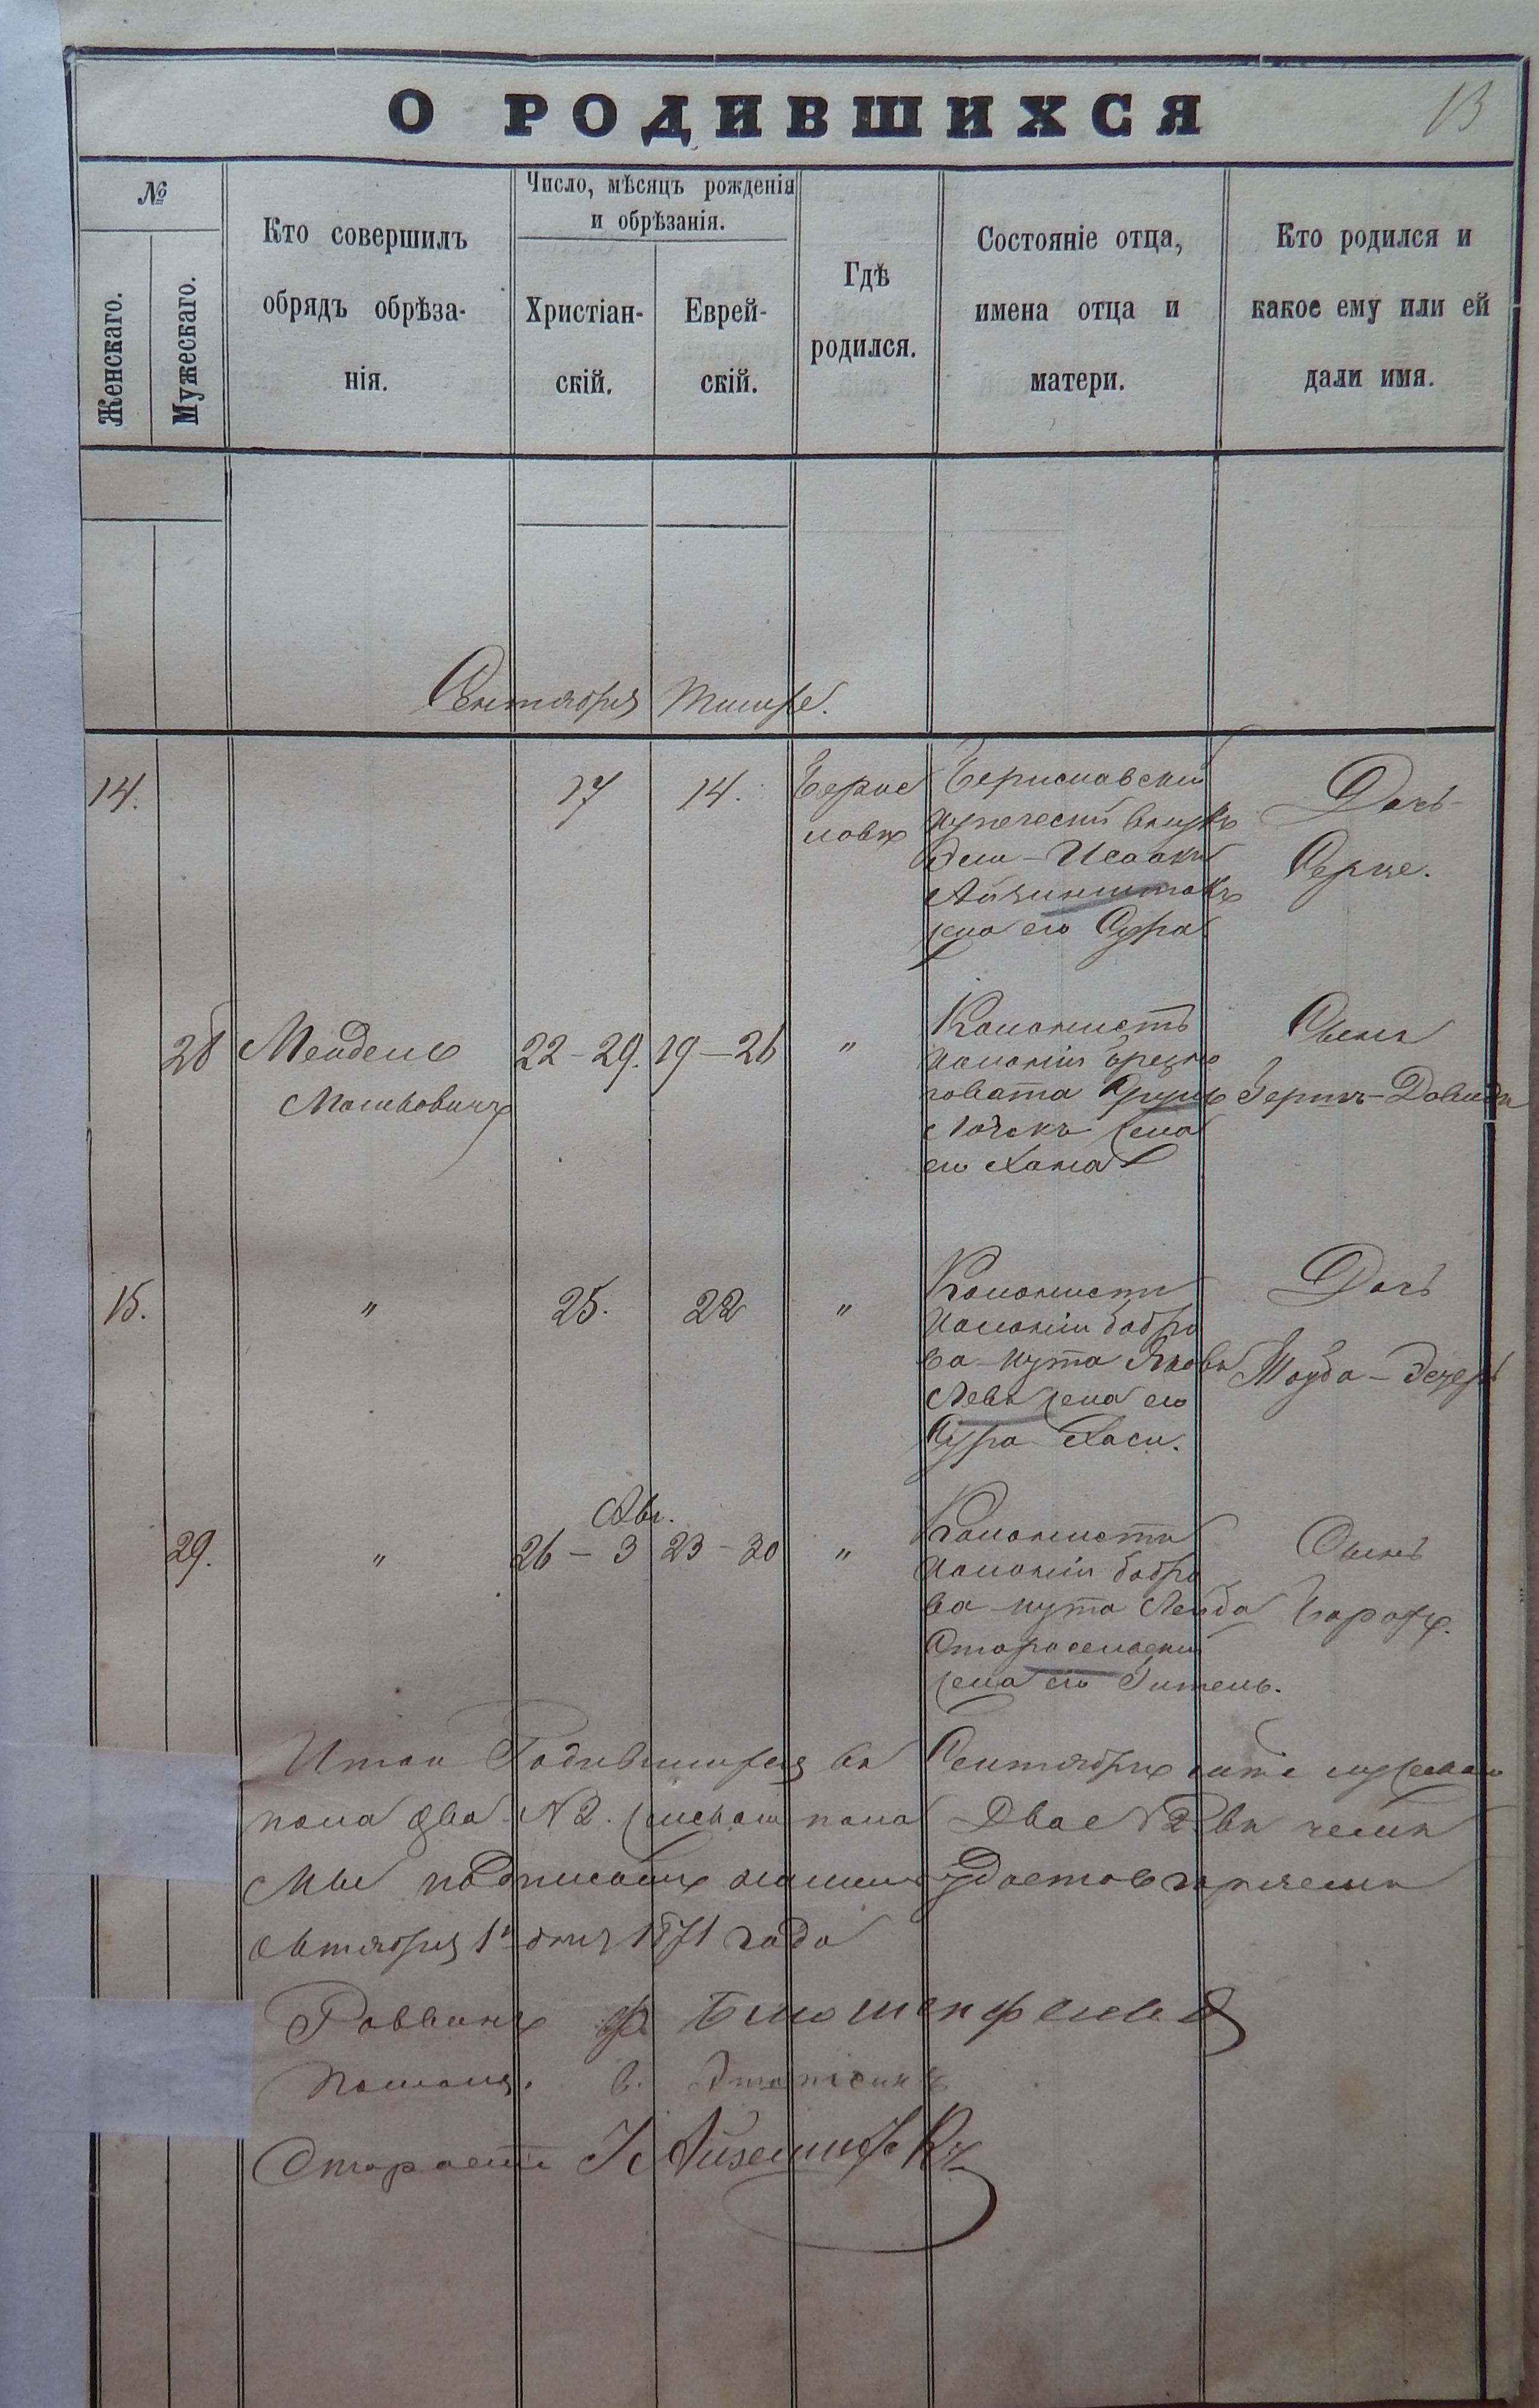 О РОДИВШИХСЯ
13
№
Женскаго.
Мужескаго.
Кто совершилъ
обрядъ обрѣза-
нія.
Число, мѣсяцъ рожденія
и обрѣзанія.
Христіан-
скій.
Еврей-
скій.
Гдѣ
родился.
Состояніе отца,
имена отца и
матери.
Кто родился и
какое ему или ей
дали имя.
Сентября Тишре.
14.
17
14.
Берис
Бериславскій
купеческій внукъ
Исаакъ
жена его Сура
Дочь
28
Мендель
22-29.
19-26
"
Колонистъ
колоніи
жена
его Хана
Сынъ
Герш-Давидъ
15.
"
25.
22
"
Колонистъ
колоніи Бобро
ва-кута Яковъ
Левъ жена его
Сура Хася.
Дочь
Тауба-Эстеръ
29.
"
26-3
23-30
"
Колонистъ
колоніи Бобро
ва-кута Лейба
Старосельскій
жена его Гитель.
Сынъ
Борохъ.
Итого Родившихся въ Сентябрѣ
пола два №2. женскаго пола Двое №2 въ чемъ
мы подписомъ нашимъ удостовѣряемъ
Октября 1го дня 1871 года
Раввинъ Блюменфельд
Староста